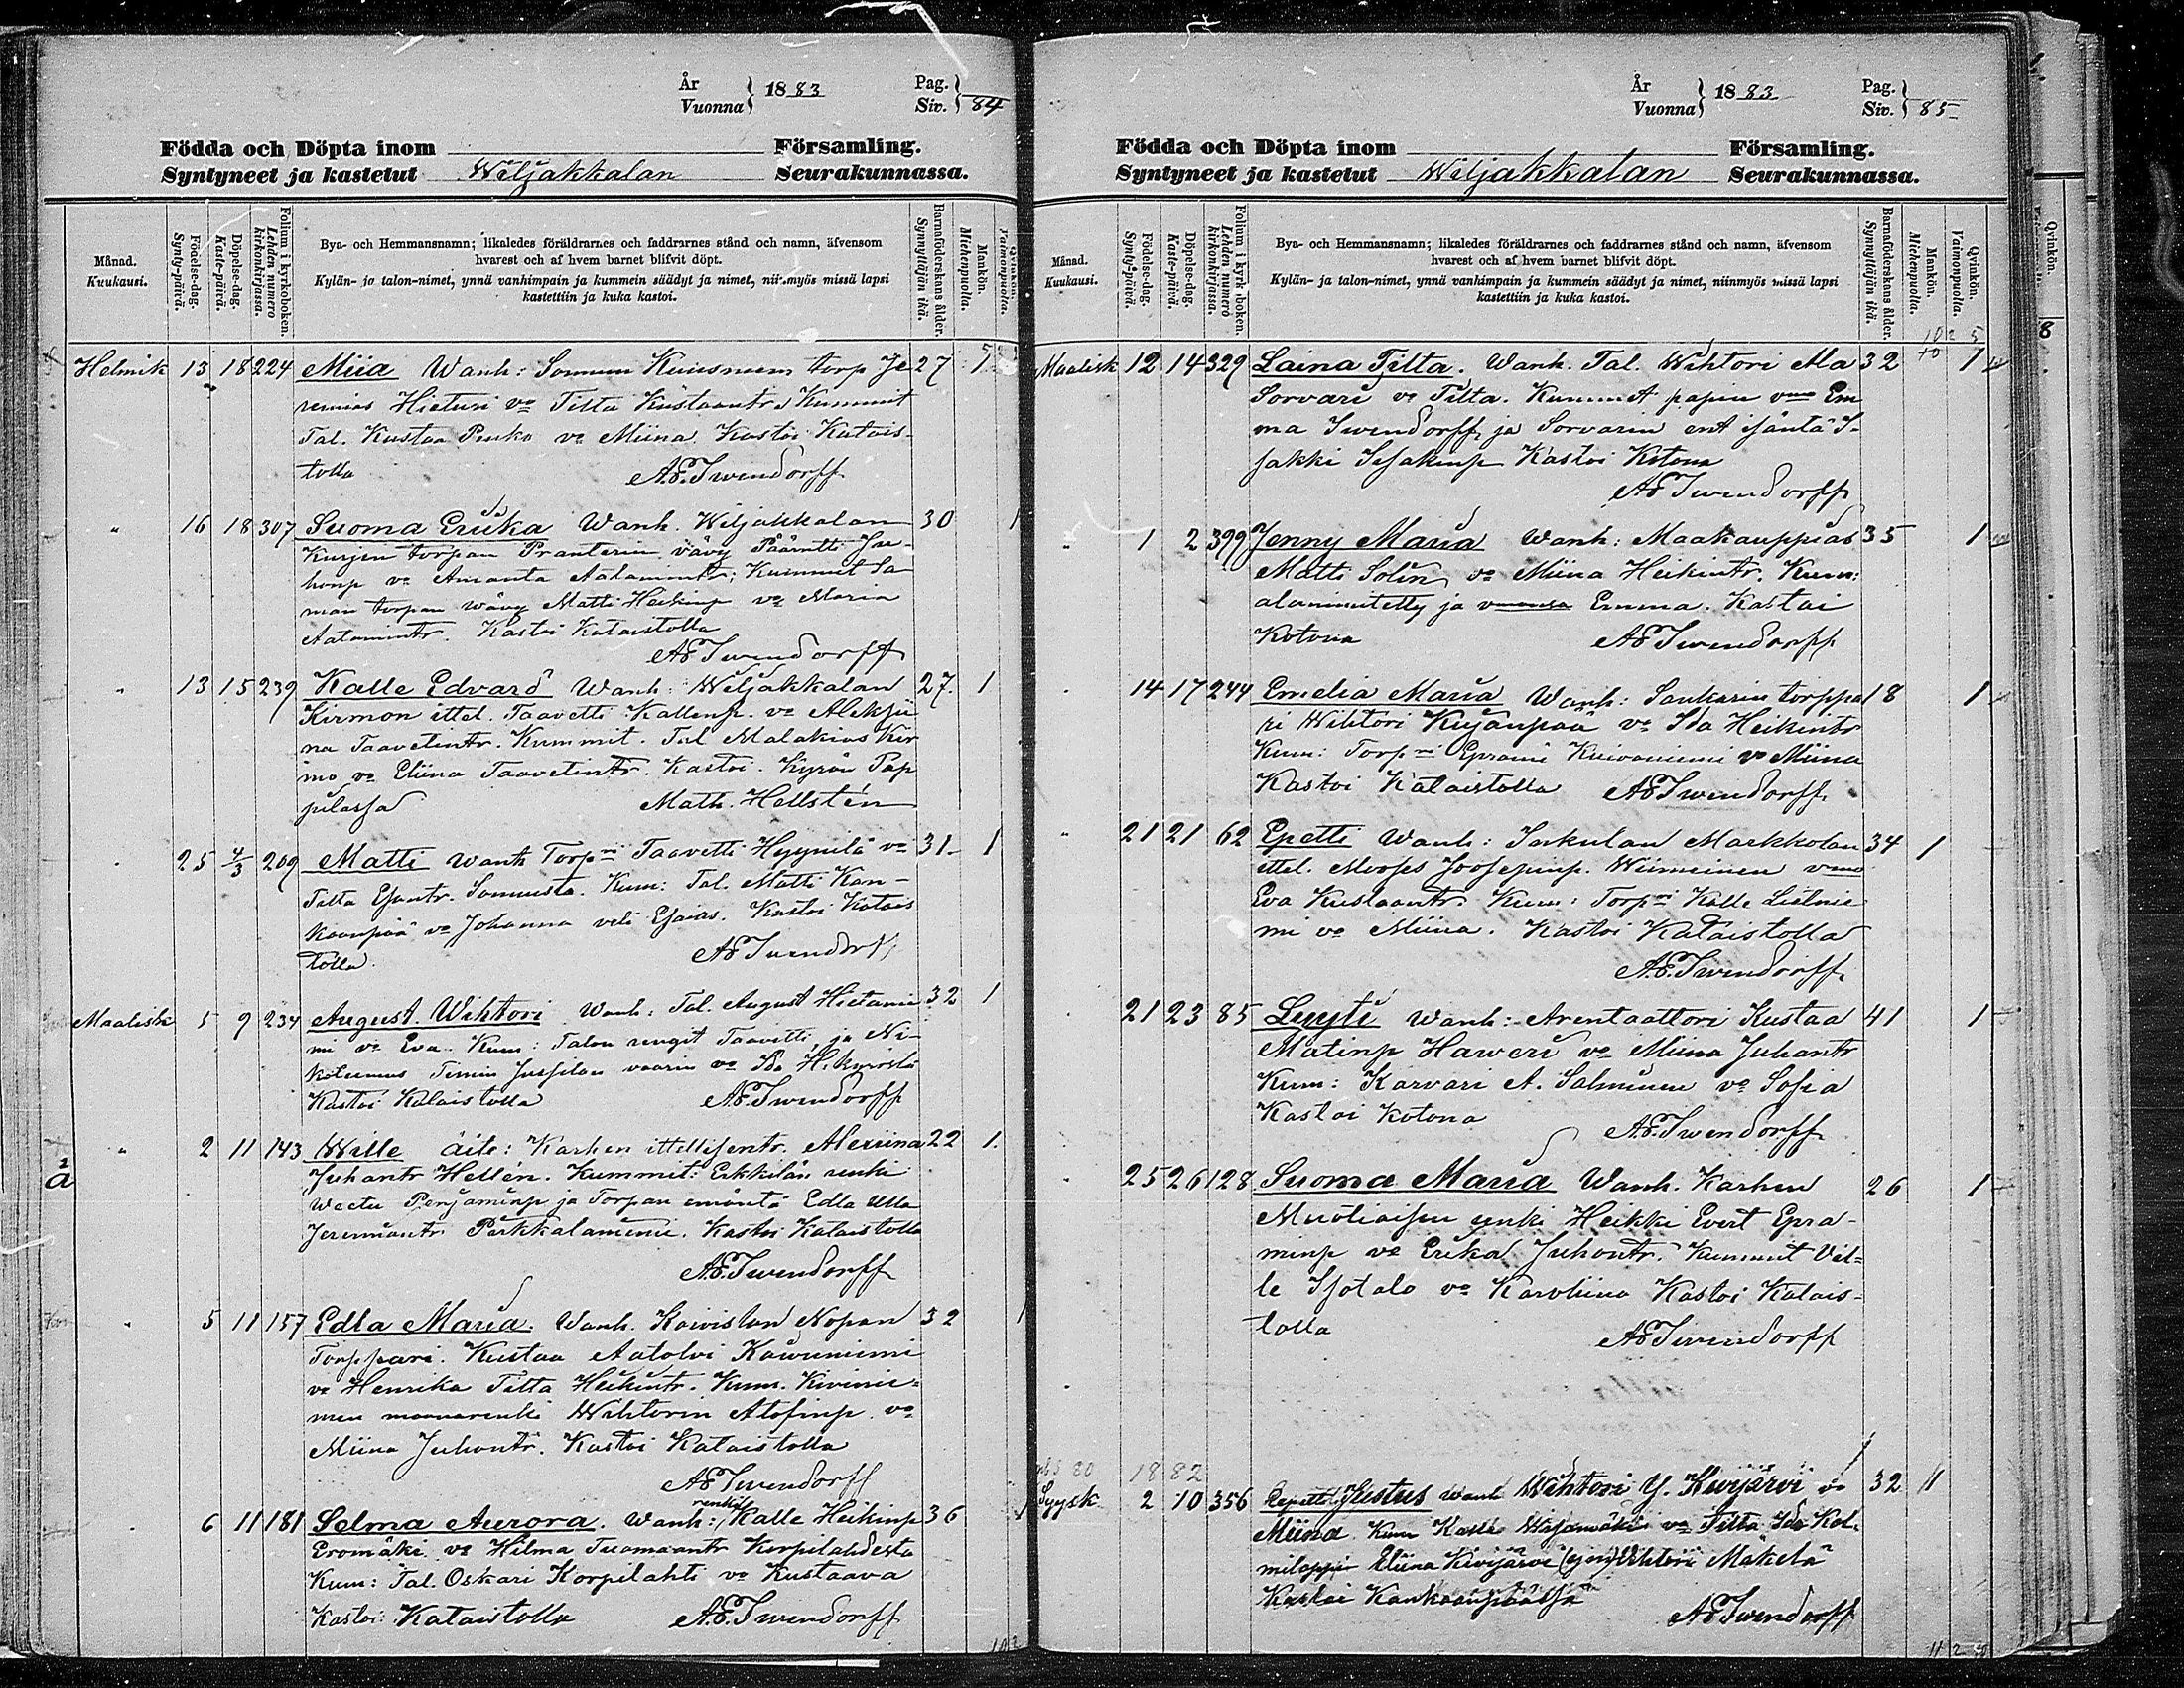 År
Vuonna } 1883
Pag.
Siv. } 84
Födda och Döpta inom Församling.
Syntyneet ja kastetut Wiljakkalan Seurakunnassa.
Månad.
Kuukausi.
Födelse-dag.
Synty-päivä.
Döpelse-dag.
Kaste-päivä.
Folium i kyrkoboken.
Lehden numero kirkonkirjassa.
Bya- och Hemmansnamn; likaledes föräldrarnes och faddrarnes stånd och namn, äfvensom
hvarest och af hvem barnet blifvit döpt.
Kylän- ja talon-nimet, ynnä vanhimpain ja kummein säädyt ja nimet, niinmyös missä lapsi
kastettiin ja kuka kastoi.
Barnaföderskans ålder.
Synnyttäjän ikä.
Mankön.
Miehenpuolia.
Qvinkön.
Vaimonpuolia.
Helmik 13 18 224 Miia Wanh: torp Je 27 1
remias Hieturi vo Tilta Kustaantr. Kummit
Tal. Kustaa vo Miina. Kastoi Katais-
tolla A.F. Iwendorff
" 16 18 307 Suoma Eriika Wanh. Wiljakkalan 30 1
Kurjen torpan vävy Ju-
honp vo Amanta Aatamintr; Kummit Sa
man torpan wävy Matti Heikinp vo Maria
Aatamintr. Kastoi Kataistolla
AF Iwendorff
" 13 15 239 Kalle Edvard Wanh: Wiljakkalan 27. 1
Kirmon ittel. Taavetti Kallenp. vo Aleksii
na Taavetintr. Kummit. Tal Malakias Kir
mo vo Eliina Taavetintr. Kastoi. Kyrön Pap
pilassa Math. Hellstén
" 25 4/3 209 Matti Wanh Torpri Taavetti Hyynilä vo 31 1
Tilta Esantr. Kum: Tal. Matti Kan-
kaanpää vo Johanna veli Esaias. Kastoi Katais
tolla. AF Iwendorff
Maalisk 5 9 234 August Wihtori Wanh: Tal. August Hietanie 32 1
mi vo Eva. Kum: Talon rengit Taavetti, ja Ni-
kotemus vaarin vo Ida H.kyröstä
Kastoi Kataistolla A.F. Iwendorff
" 2 11 143 Wille äite: Karhen ittellisentr. Alexiina 22 1.
Juhantr Hellén. Kummit: Erkkilän renki
Weetu Penjaminp ja Torpan emäntä Edla Ulla
Jeremiantr Parkkalaniemi. Kastoi Kataistolla
A.F. Iwendorff
" 5 11 157 Edla Maria. Wanh. Koiviston Kopan 32 1
Torppari. Kustaa Aatolvi Kawuniemi
vo Henrika Tilta Heikintr. Kum. Kivinie-
men Wihtorin Atofinp. vo
Miina Juhontr. Kastoi Kataistolla
AF Iwendorff
" 6 11 181 Selma Aurora. Wanh: renki Kalle Heikinp 36 1
Eromäki vo Hilma Tuomaantr Korpilahdesta
Kum: Tal. Oskari Korpilahti vo Kustaava
Kastoi: Kataistolla A.F. Iwendorff
År
Vuonna } 1883
Pag.
Siv. } 85
Födda och Döpta inom Församling.
Syntyneet ja kastetut Wiljakkalan Seurakunnassa.
Månad.
Kuukausi.
Födelse-dag.
Synty-päivä.
Döpelse-dag.
Kaste-päivä.
Folium i kyrkoboken.
Lehden numero kirkonkirjassa.
Bya- och Hemmansnamn; likaledes föräldrarnes och faddrarnes stånd och namn, äfvensom
hvarest och af hvem barnet blifvit döpt.
Kylän- ja talon-nimet, ynnä vanhimpain ja kummein säädyt ja nimet, niinmyös missä lapsi
kastettiin ja kuka kastoi.
Barnaföderskans ålder.
Synnyttäjän ikä.
Mankön.
Miehenpuolia.
Qvinkön.
Vaimonpuolia.
Maalisk 12 14 329 Laina Tilta. Wanh. Tal. Wihtori Ala 32 1
Sorvari vo Tilta. Kummit papin vmo Em
ma Iwendorff, ja Sorvarin ent isäntä I-
sakki Isakinp Kastoi Kotona
AF Iwendorff
" 1 2 399 Jenny Maria Wanh: Maakauppias 35 1
Matti Solin vo Miina Heikintr. Kum:
alanimitetty ja Emma. Kastoi
Kotona AF Iwendorff
" 14 17 244 Emelia Maria Wanh: Saukarin torppa 18 1
ri Wihtori Kujanpää vo Ida Heikintr
Kum: Torpri Eprami Kuivaniemi vo Miina
Kastoi Kataistolla AF Iwendorff.
" 21 21 62 Epetti Wanh: Inkulan Markkolan 34 1
ittel. Mooses Joosepinp. Wiiminen vmo
Eva Kustaantr. Kum: Torpri Kalle Lielnie
mi vo Miina. Kastoi Kataistolla
A.F. Iwendorff,
21 23 85 Lyyti Wanh: Arentaattori Kustaa 41 1
Matinp Haweri vo Miina Juhantr
Kum: Karvari A. Salminen vo Sofia
Kastoi kotona A.F. Iwendorff.
25 26 128 Suoma Maria Wanh. Karhen 26 1
Muotiaisen renki Heikki Evert Epra-
minp vo Erika Juhontr. Kummit Vil-
le Isotalo vo Karoliina Kastoi Katais-
tolla AF Iwendorff
1882
Syysk 2 10 356 Justus wanh Wihtori Y. Kivijärvi vo 32 11
Miina Kum Kalle Wajamäki vo Tilta, Ida Kol-
miloppi Eliina Kivijärvi (ejon) Wihtori Mäkelä
Kastoi Kankaanpäässä AF Iwendorff